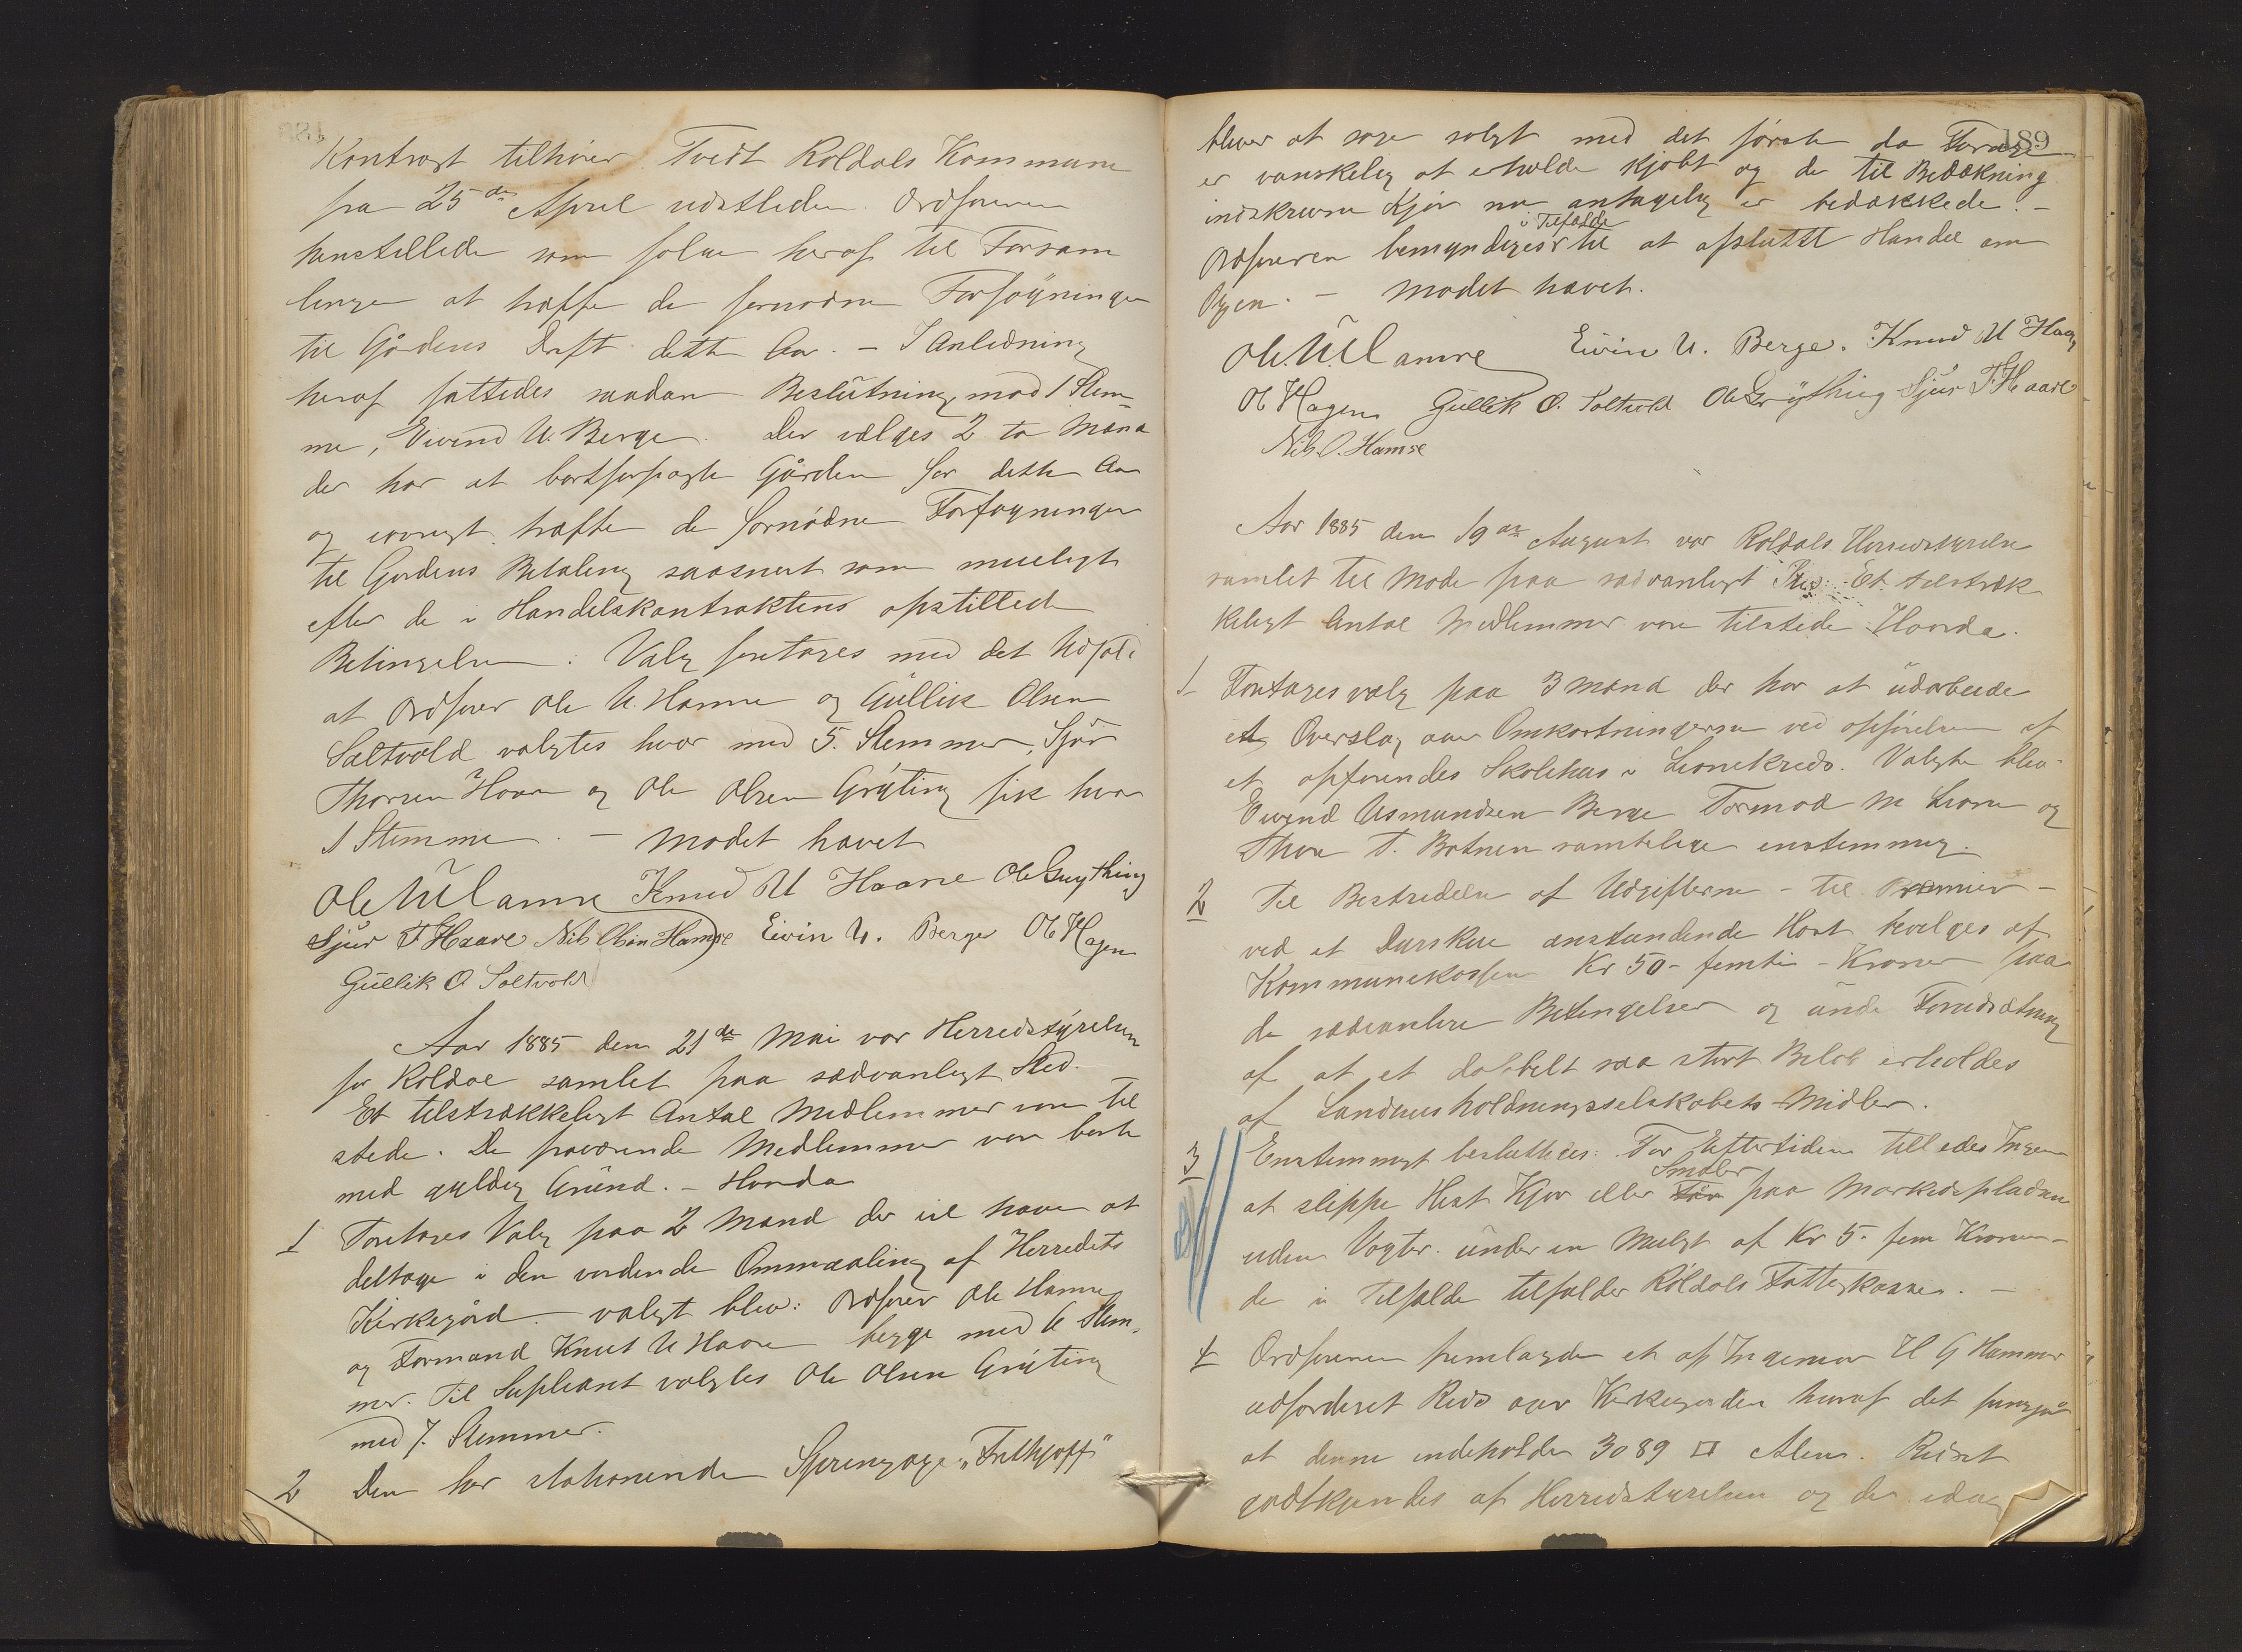 Kontragt tilhører Tvedt Röldals Kommune
fra 25de April udstleden Ordføreren
henstillede som følge heraf til Forsam
lingen at træffe de fornødne Forføyninger
til Gårdens Drift dette Aar. – I Anledning
heraf fattedes saadan Beslutning, mod 1 Stem-
me, Eivend U. Berge. Der vælges 2 to Mænd
der har at bortforpagte Gården for dette Aar
og iøvrigt træffe de fornødne Forføyninger
til Gardens Betaling saasnart som mueligt
efter de i Handelskontraktens opstillede
Betingelser: Valg foretages med det Udfald
at Ordfører Ole U. Hamre og Gullik Olsen
Saltvold valgtes hver med 5. Stemmer, Sjur
Thorsen Haare og Ole Olsen Grýting fik hver
1 Stemme. – Mødet hævet
Ole U. Hamre Knud U Haare Ole Gryting
Sjur T Haare Nils Olsen Hamre Eivin U. Berge O Hagen
Gullik O Saltvold
Aar 1885 den 21de Mai var Herredstýrelsen
for Röldal samlet paa sædvanligt Sted.
Et tilstrækkeligt Antal Medlemmer var til
stede. De fraværende Medlemmer var borte
med gyldig Grund. – Handa
1 Foretoges Valg paa 2 Mænd der vil have at
deltage i den vordende Ommaaling af Herredets
Kirkegård. valgt blev: Ordfører Ole Hamre
og Formand Knut U Haare begge med 6 Stem,
mer. Til Supleant valgtes Ole Olsen Grýting
med 7. Stemmer.
2 Den her stationerende Springoxe „Frithjoff"
189
bliver at søge solgt med det første da
er vanskelig at erholde kjøbt og de til Bedækning
indskrevne Kjør nu antagelig er bedækkede. –
i Tilfælde
Ordføreren bemyndiges til at afslutte Handel om
Oxen. – Mødet hævet.
Ole U. Hamre Eivin U. Berge. Knud U Haare
O Hagen Gullik O. Saltvold Ole Gryting Sjur T. Haare
Nils O. Hamre
Aar 1885 den 19de August var Röldals Herredstyrelse
samlet til Møde paa sædvanligt Et tilstræk
keligt Antal Medlemmer vare tilstede Haanda.
1 Foretoges valg paa 3 Mænd der har at udarbeide
et Overslag over Omkostningerne ved opførelsen af
et opførendes Skolehus i Lionekreds. Valgte blev
Eivend Asmundsen Berge Tormod M Lione og
Thore T. Botnen samtelige enstemmig.
2 Til Bestridelse af Udgifterne – til Præmier –
ved et Dyrskue anstundende Høst bevilges af
Kommunekassen Kr 50 – femti – Kroner paa
de sædvanlige Betingelser og under Forudsætning
af at et dobbelt saa stort Beløb erholdes
af Landhusholdningsselskabets Midler.
3 Enstemmigt besluttedes: For Eftertiden tillades Ingen
Smaler
at slippe Hest Kjør eller Får paa Markedspladsen
uden Vogter. under en Mulgt af Kr 5. fem Kroner –
de i Tilfælde tilfalder Röldals Fattigkasse. –
4 Ordføreren fremlagde et af Ingeniør H G Hammer
udfærdiget Rids over Kirkegården hvoraf det fremgår
at denne indeholder 3089 □ Alen. Ridset
godtkjendes af Herredstyrelsen og der idag